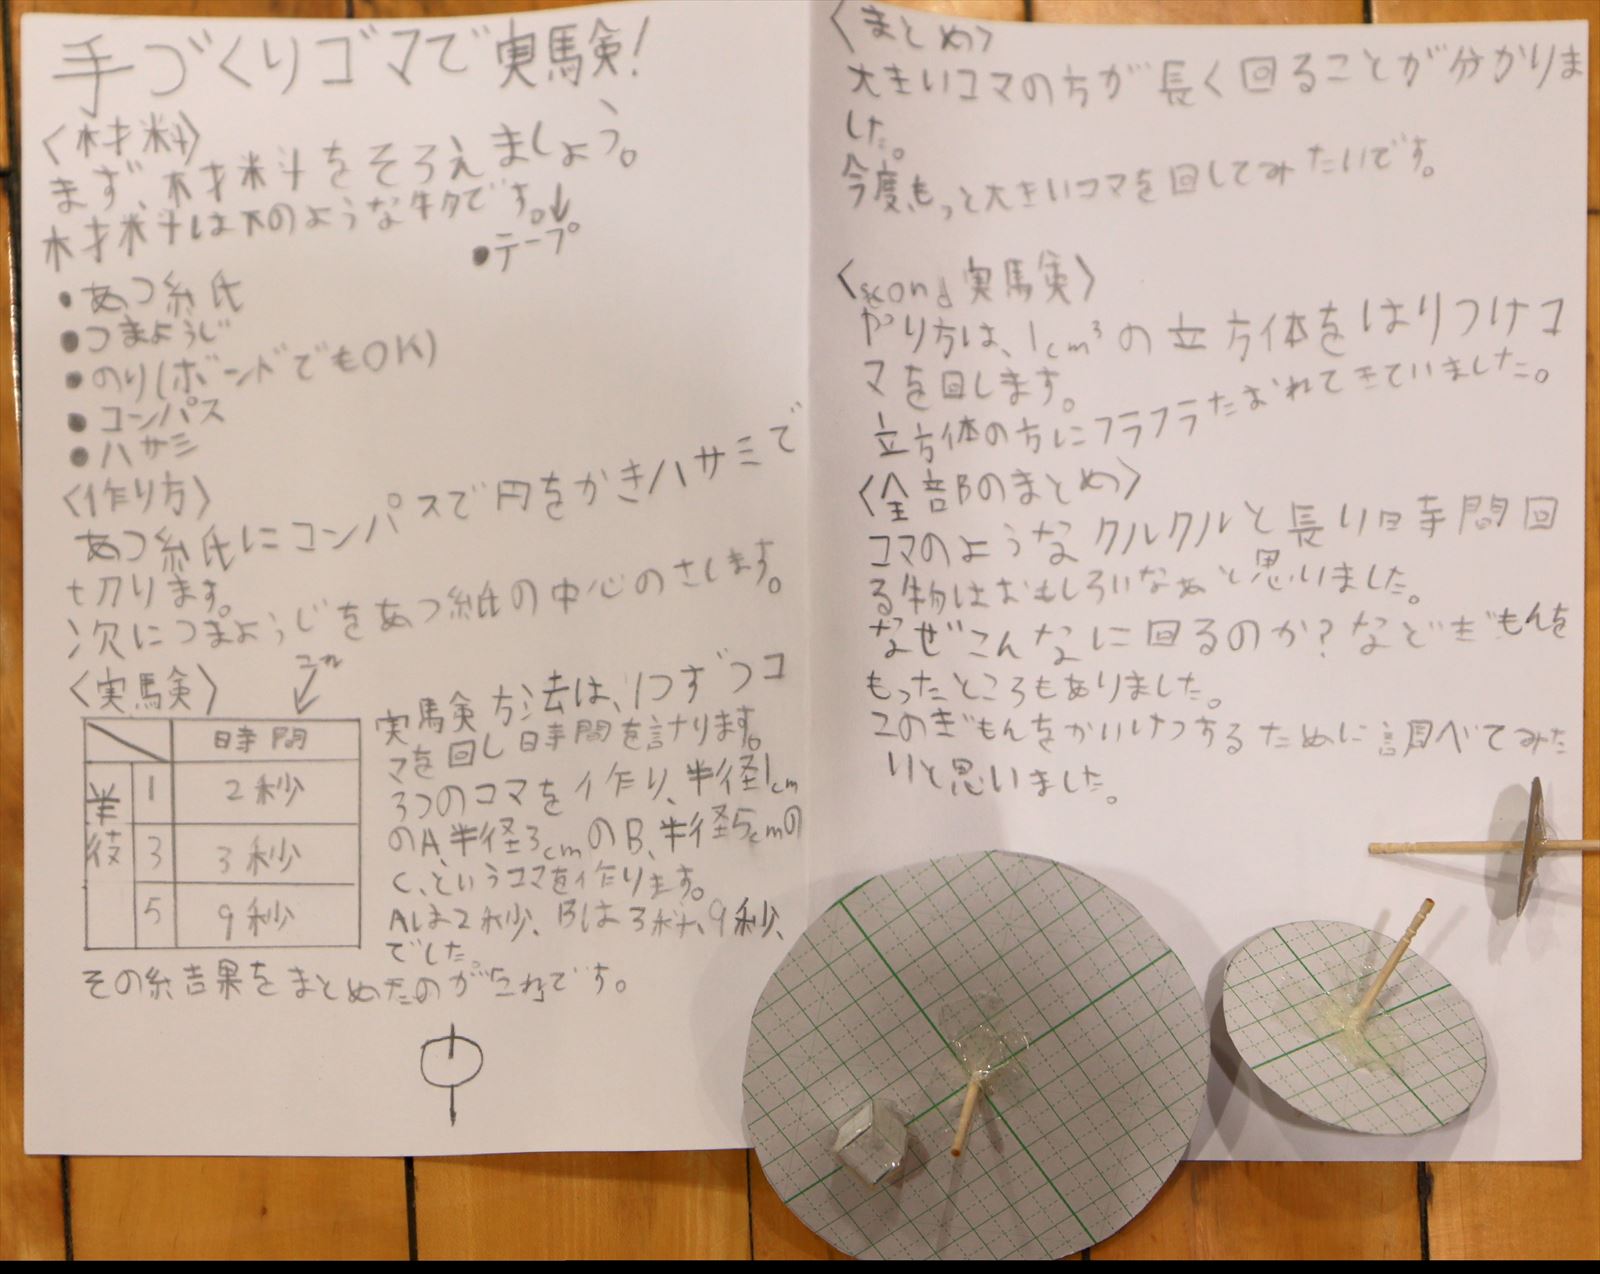 手づくりゴマで実験!
〈材料〉
まず、材料をそろえましょう。
材料は下のような物です。↓
●テープ
・あつ紙
●つまようじ
●のり(ボンドでもOK)
●コンパス
●ハサミ
〈作り方〉
あつ紙にコンパスで円をかきハサミで
切ります。
次につまようじをあつ紙の中心のさします。
〈実験〉
これ
時間
半径
1 2秒
3 3秒
5 9秒
実験方法は、1つずつコ
マを回し時間を計ります。
3つのコマを作り、半径1cm
のA、半径3cmのB、半径5cmの
C、というコマを作ります。
Aは2秒、Bは3秒、9秒、
でした。
その結果をまとめたのがこれです。
〈まとめ〉
大きいコマの方が長く回ることが分かりま
した。
今度、もっと大きいコマを回してみたいです。
〈second実験〉
やり方は、1cm³の立方体をはりつけコ
マを回します。
立方体の方にフラフラたおれてきていました。
〈全部のまとめ〉
コマのようなクルクルと長い時間回
る物はおもしろいなぁと思いました。
なぜこんなに回るのか?などぎもんを
もったところもありました。
このぎもんをかいけつするために調べてみた
いと思いました。